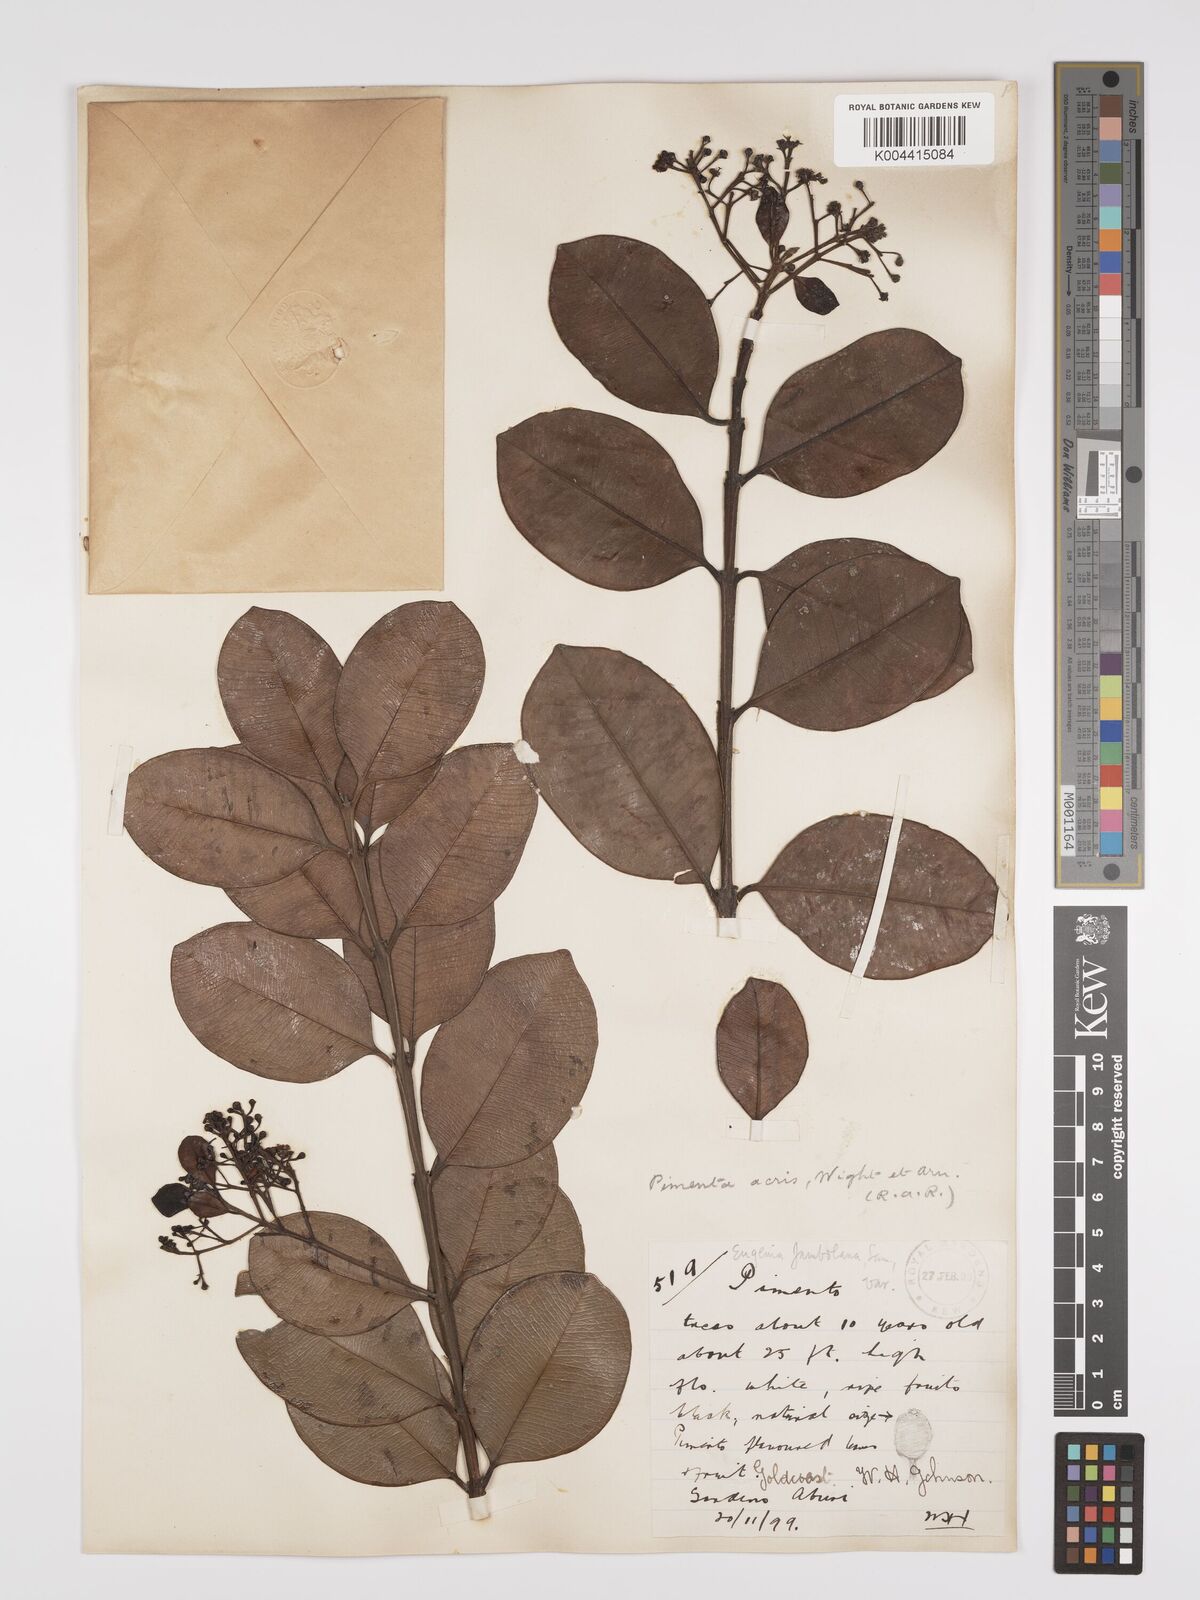 ROYAL BOTANIC GARDENS KEW
K004415084
Pimenta acris, Wight et Arn.
(R.A.R.)
Eugenia Jambolana, Lam,
var.
51a/ Pimento
ROYAL GARDENS KEW
27 FEB.
trees about 10 years old
about 25 ft. high
flo. white, ripe fruits
black, natural size →
Pimento flavoured leaves
+ fruit. Goldcoast W. H. Johnson.
Gardens Aburi
20/11/99.
inches
Density
Don Williams
centimeters
M001164
Royal Botanic Gardens
Kew
0 1 2 3 4 5 6 7 8 9 10
copyright reserved